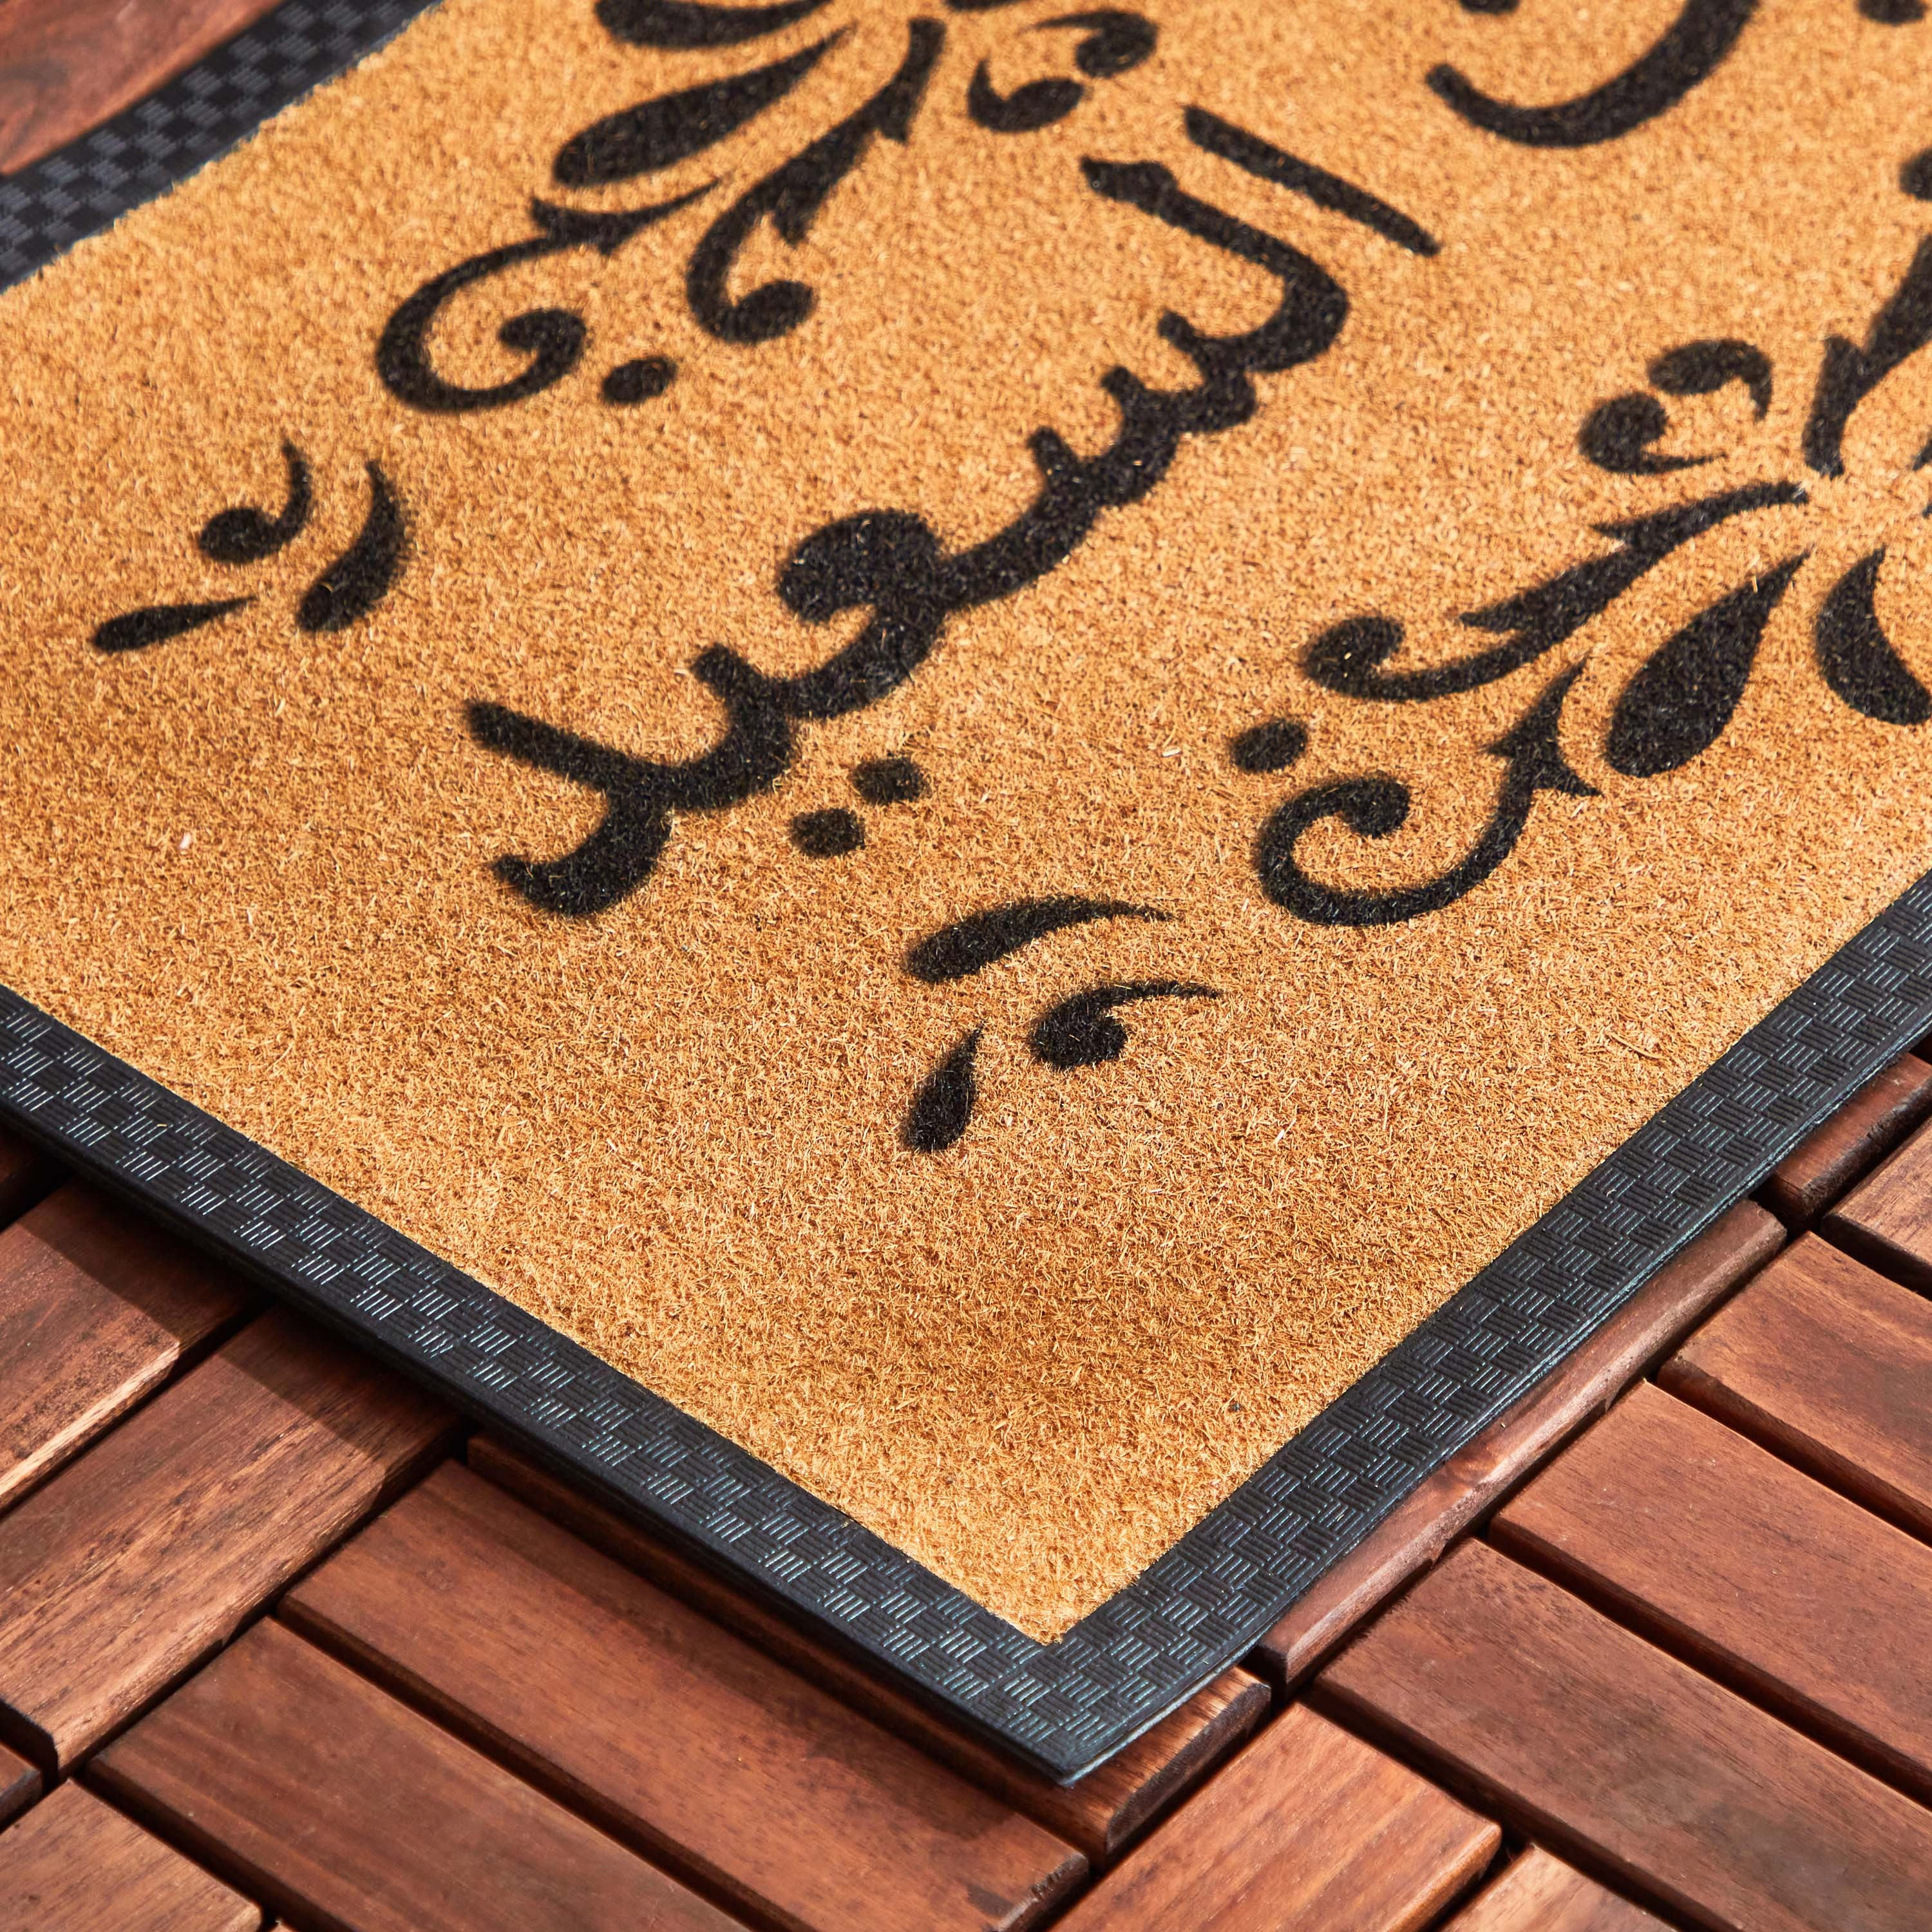 السويد